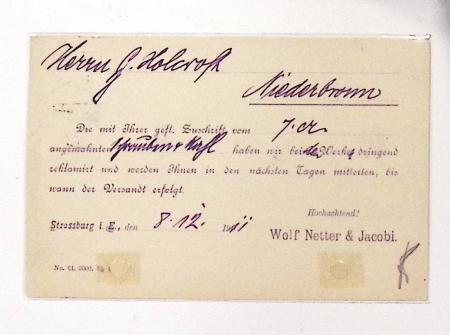 Herrn G. Holcroft
Niederbronn
Die mit Ihrer gefl. Zuschrift vom 7. cr
angemahnten Schrauben haben wir bei Werke dringend
reklamirt und werden Ihnen in den nächsten Tagen mitteilen, bis
wann der Versandt erfolgt.
Hochachtend!
Strassburg i. E., den 8.12. 1911
Wolf Netter & Jacobi.
No. 61.